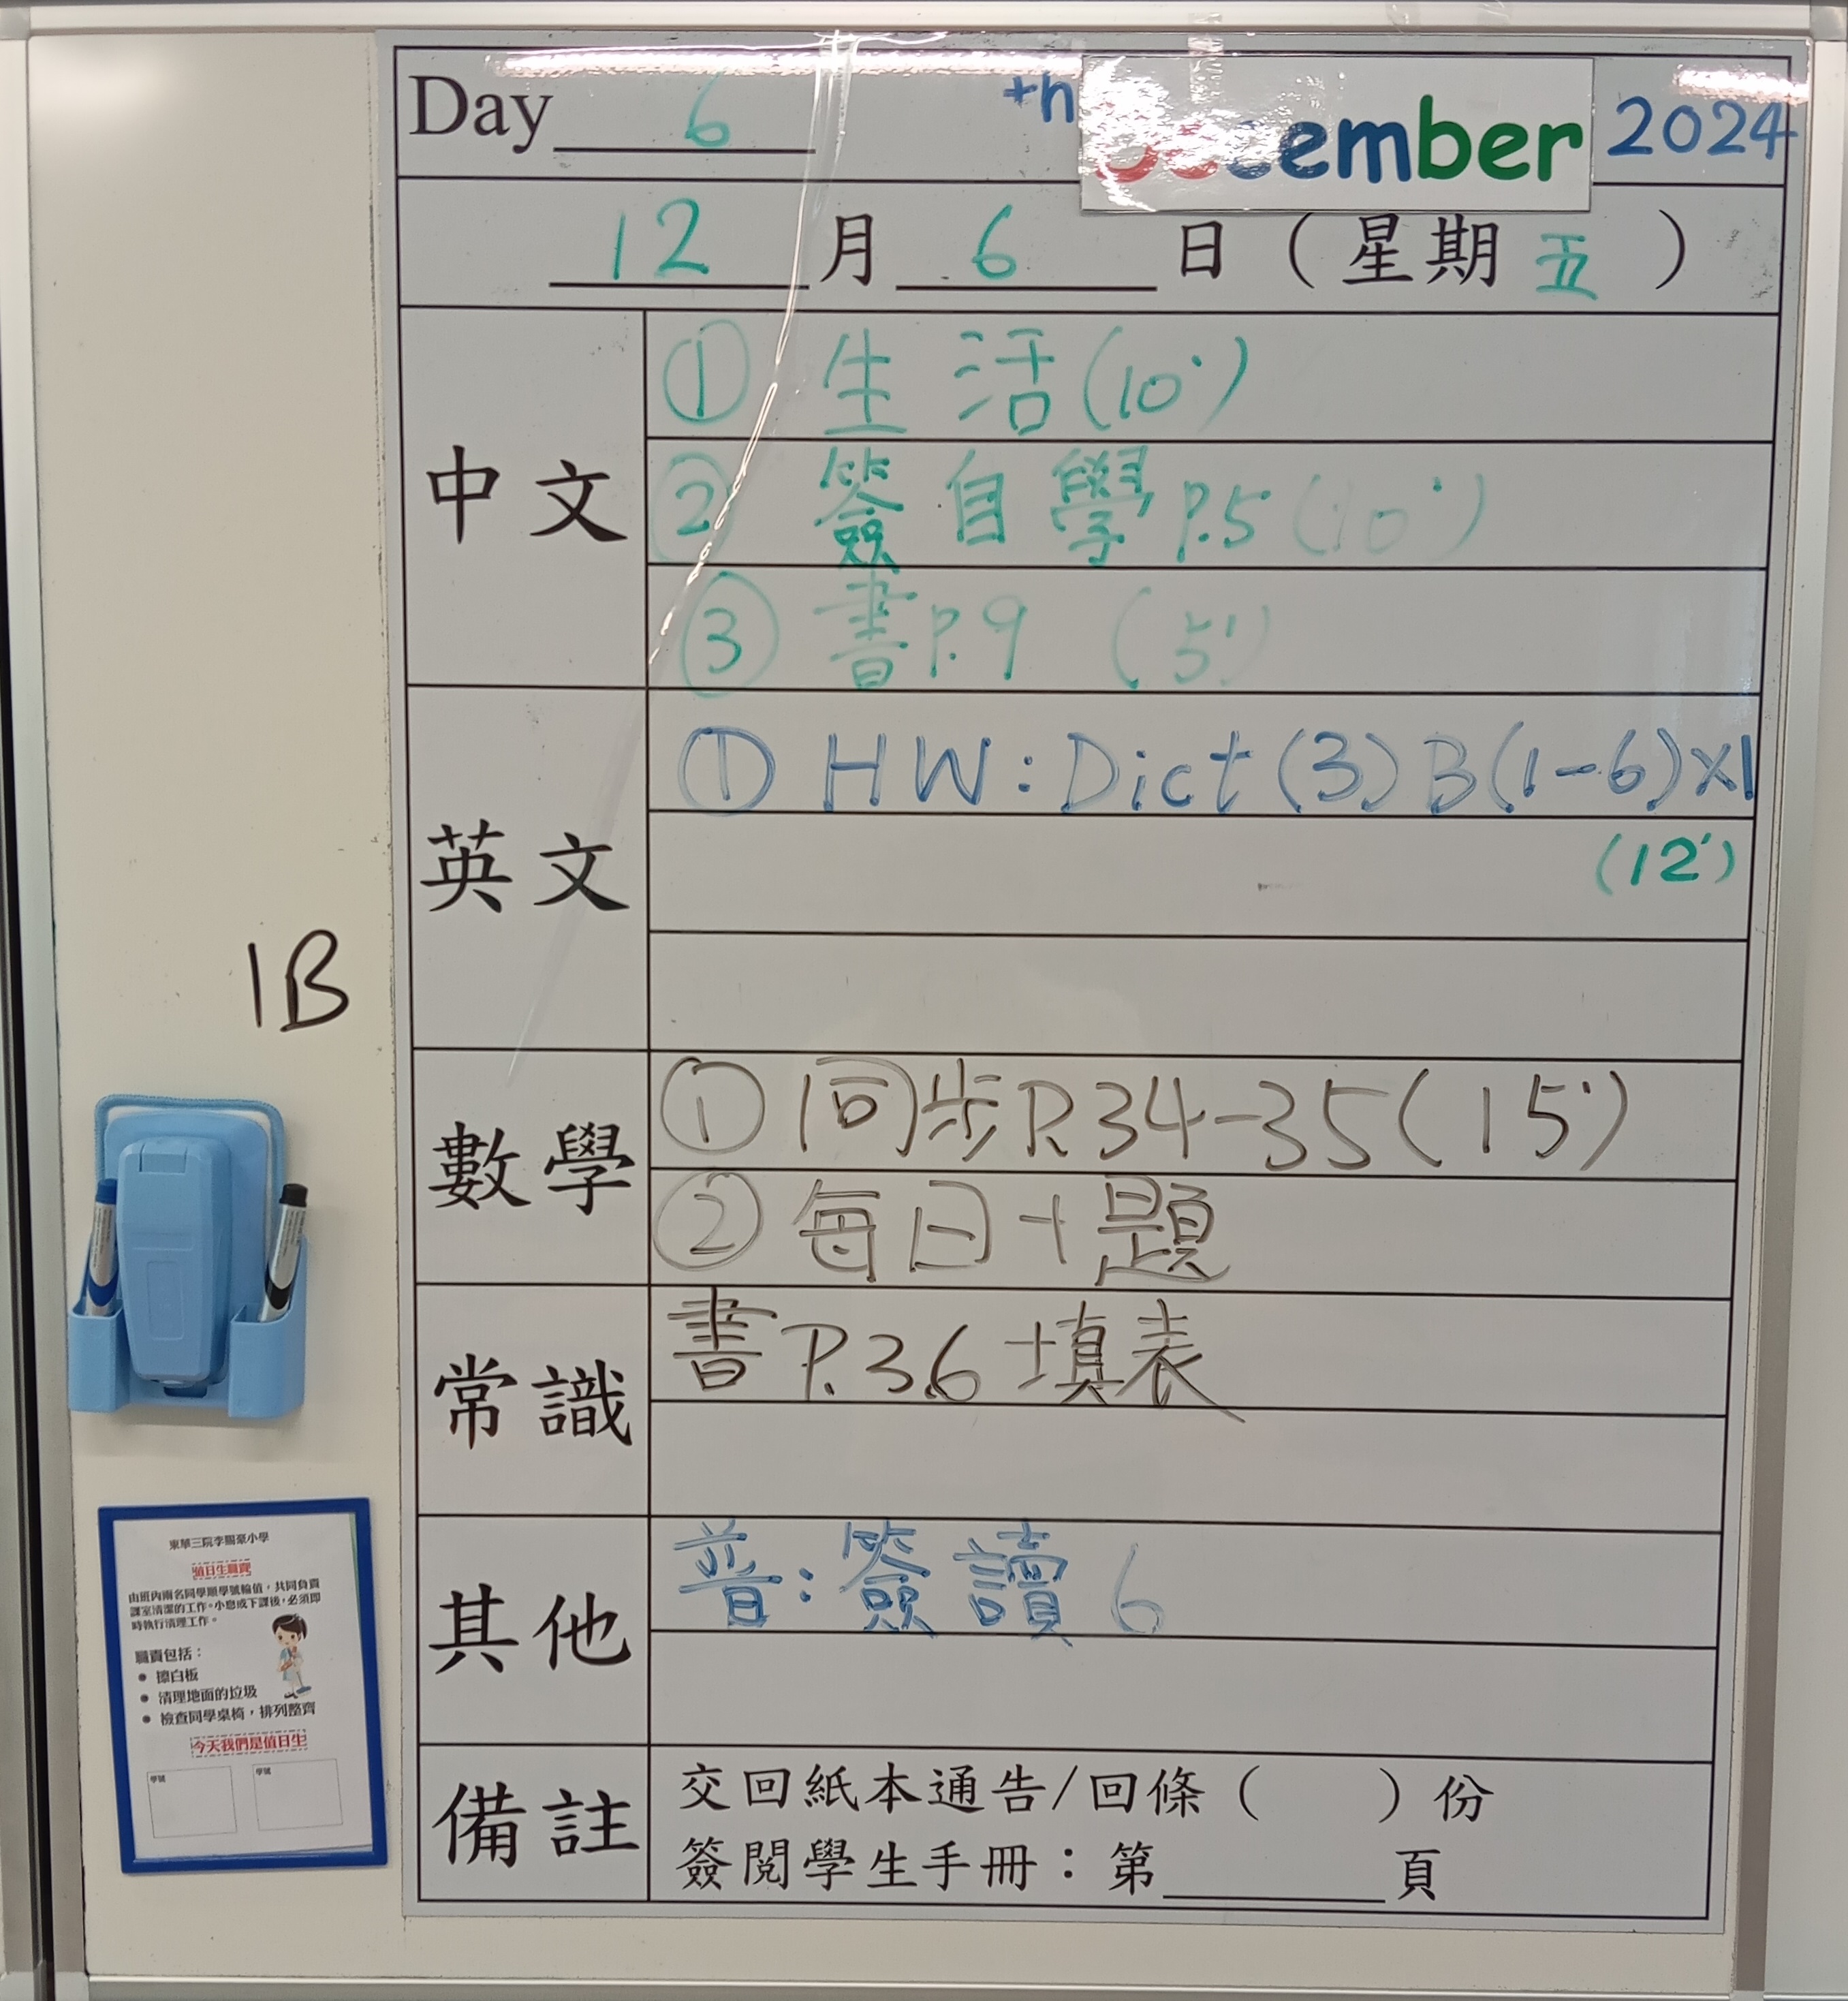 Day 6 th December 2024
12 月 6 日 ( 星期 五 )
中文
① 生活 (10')
② 簽自學 P.5 (10')
③ 書 P.9 (5')
英文
① HW: Dict (3) B (1-6) x1
(12')
數學
① 同步 P.34-35 (15')
② 每日十題
常識
書 P.36 填表
其他
普: 簽讀 6
備註
交回紙本通告/回條 ( ) 份
簽閱學生手冊:第______頁
1B
東華三院李賜豪小學
值日生職責
由班內兩名同學順學號輪值,共同負責
課室清潔的工作。小息或下課後,必須即
時執行清理工作。
職責包括:
● 擦白板
● 清理地面的垃圾
● 檢查同學桌椅,排列整齊
今天我們是值日生
學號 學號